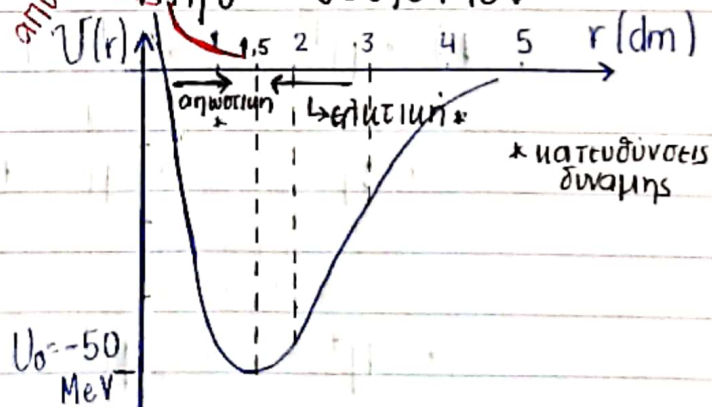 U(r) 1 1,5 2 3 4 5 r(dm)
απωστική
*
↳ελκτική *
* κατευθύνσεις
δυναμης
U₀=-50
MeV